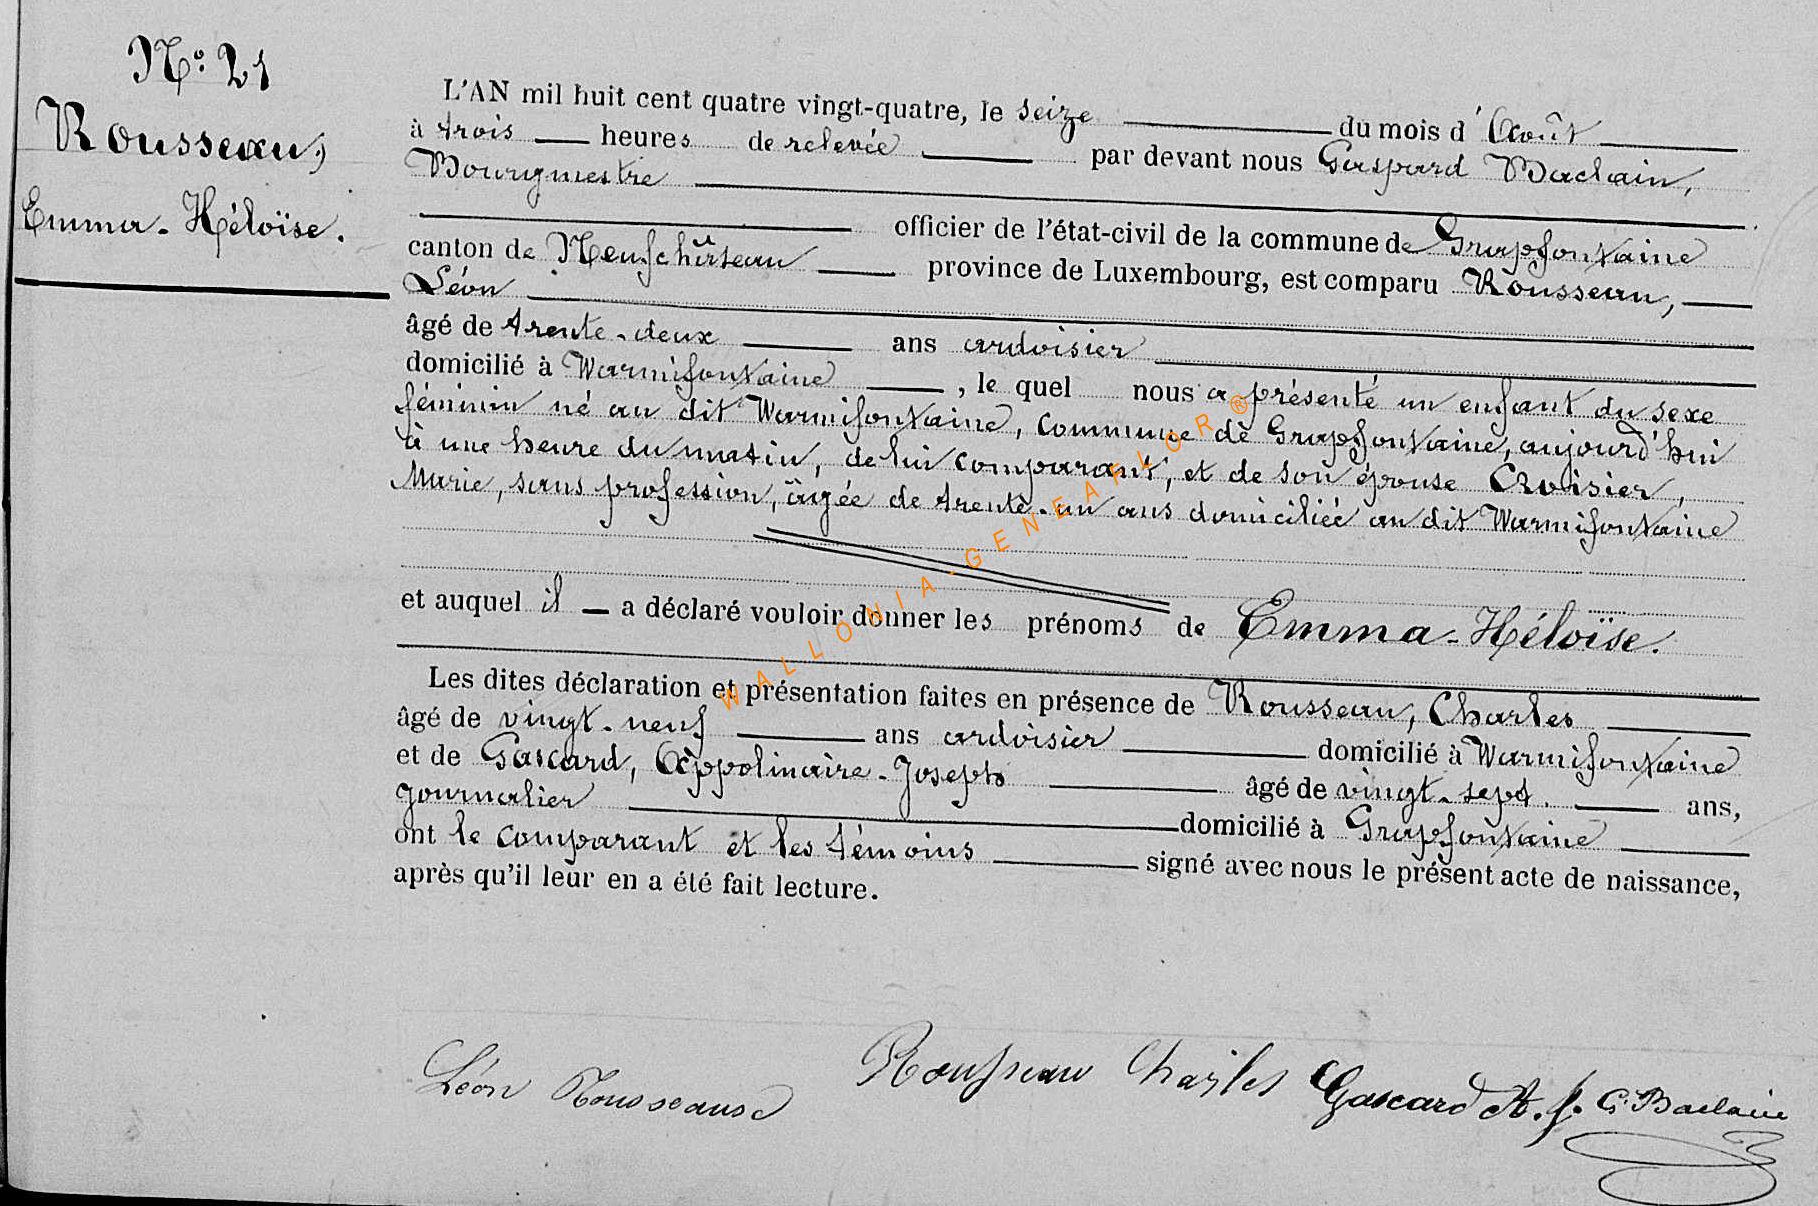 N° 21
Rousseau,
Emma-Héloïse.
L'AN mil huit cent quatre vingt-quatre, le seize du mois d'Août
à trois heures de relevée par devant nous Gaspard Baclain,
Bourgmestre
officier de l'état-civil de la commune de Grapfontaine
canton de Neufchâteau province de Luxembourg, est comparu Rousseau,
Léon
âgé de trente-deux ans ardoisier
domicilié à Warmifontaine, le quel nous a présenté un enfant du sexe
féminin né au dit Warmifontaine, commune de Grapfontaine, aujourd'hui
à une heure du matin, de lui comparant, et de son épouse Croisier,
Marie, sans profession, âgée de trente-un ans domiciliée au dit Warmifontaine
et auquel il a déclaré vouloir donner les prénoms de Emma-Héloïse.
Les dites déclaration et présentation faites en présence de Rousseau, Charles
âgé de vingt-neuf ans ardoisier domicilié à Warmifontaine
et de Gascard, Appolinaire-Joseph âgé de vingt-sept ans,
journalier domicilié à Grapfontaine
ont le comparant et les témoins signé avec nous le présent acte de naissance,
après qu'il leur en a été fait lecture.
WALLONIA-GENEAFLOR®
Léon Rousseaux
Rousseau Charles Gascard A. J. G. Baclain